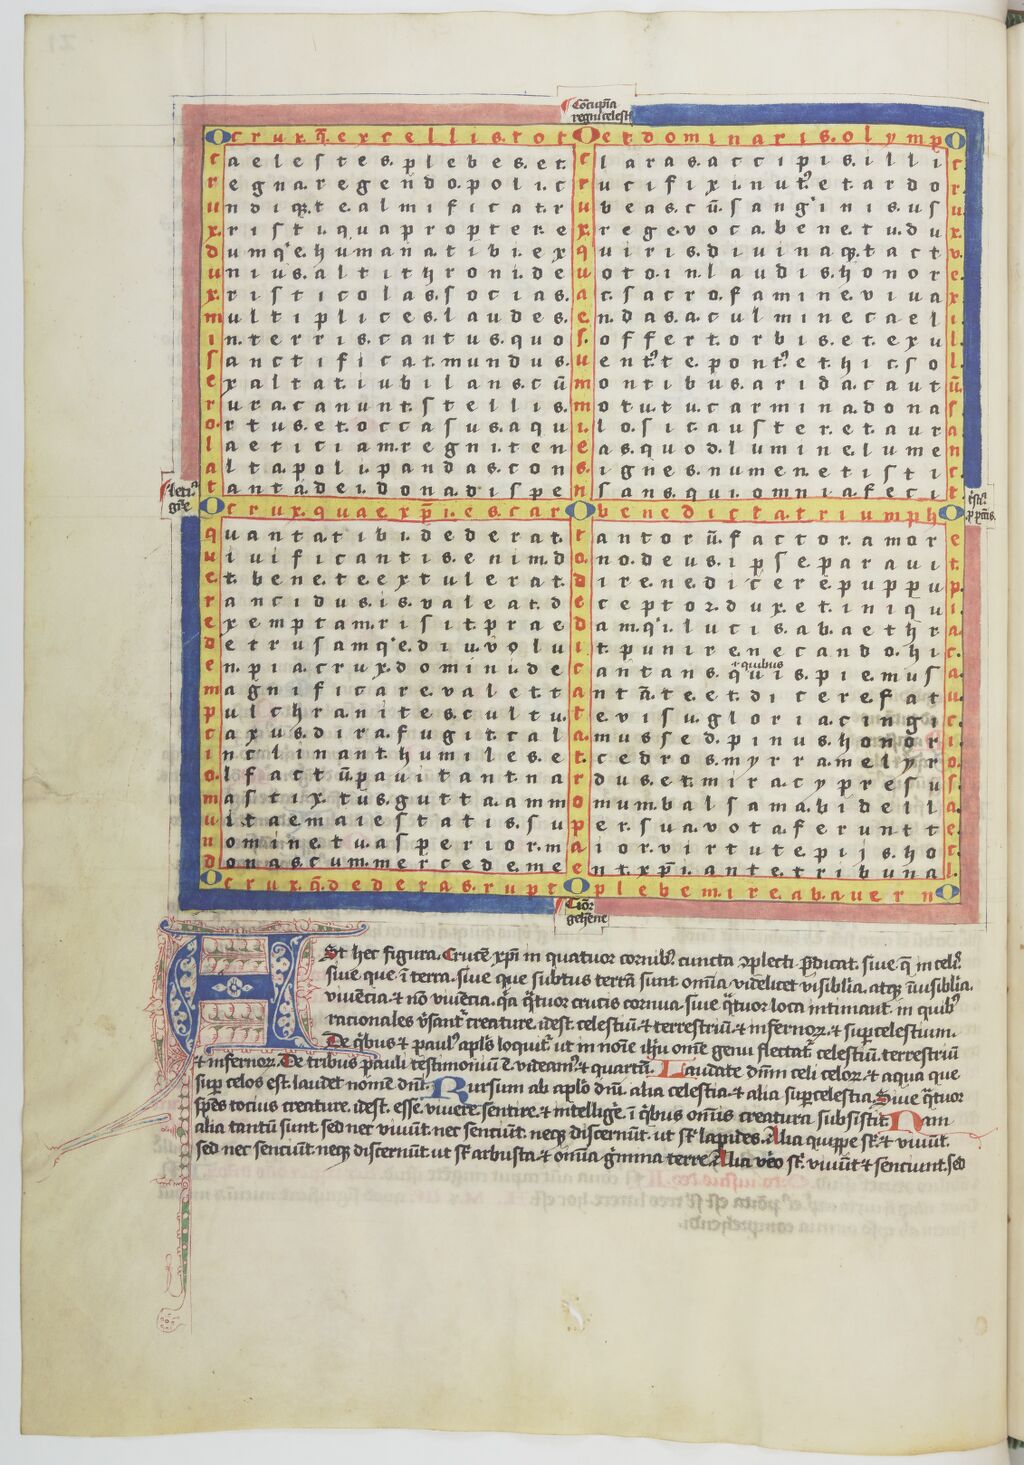 Cōcupīa
regni celest
Ocrux.q̄.excellis.totOetdominaris.olympO
caelestes.plebes.et.claras.accipis.illic
regna.regendo.poli.crucifixi.nut.etardor
undiq.tealmificat.rubeas.cū.sanginis.usu
x.risti.quapropter.ex.rege.voca.benetu.dux.
dumq.ehumana.tibi.exquiris.diuinaq.tactv.
unius.altithroni.deuotoin.laudis.honore
x.risticolas.socias.ac.sacro.famine.viuax
multiplices.laudes.en.das.a.culmine.caeli
in.terris.cantus.quos.offert.orbis.et.exul
sanctificat.mundus.uente.ponteethic.sol
exaltat.iubilans.cūmontibus.arida.cautū.
rura.canunt.stellis.motutu.carmina.donas
ortus.et.occasus.aquilo.sic.auster.et.aura
laeticiam.regni.teneas.quod.lumine.lumen
alta.poli.pandas.consignes.numen.et.istic
tantā.dei.dona.dispensans.qui.omnia.fecit
leti.
ḡr̄e
Ocrux.quaexpī.es.carObenedicta.triumphO
quanta.tibi.dederat.tantorū.factor.amore
uiuificantis.enim.dono.deus.ipse.parauit
et.bene.te.extulerat.dire.nedicere.puppup.
rancidus.is.valeat.deceptor.dux.et.iniqui
exemptam.risit.praedam.qi.lucis.ab.aethra
detrusam.qe.diuvoluit.punire.necando.hic
en.pia.crux.domini.decantans.quis.pie.musa
quibus
magnificare.valet.tantā.te.et.dicere.fatu
pulchra.nites.cultu.te.visu.gloria.cingic
caxus.dira.fugit.calamus.sed.pinus.honori
inclinant.humiles.et.cedros.myrra.melyro
olfactū.pauitant.nardus.et.mira.cypressus.
mastix.tus.gutta.ammomum.balsama.bidella
uitae.maiestatis.super.sua.vota.feruntte
nomine.tu.asperior.maior.virtute.pijs.hoc
donas.cum.mercede.meent.xpī.ante.tribunal
Ocrux.q̄.dederas.ruptOplebem.ire.abauernO
gehēne
Est hec figura. Crucē xp̄i in quatuor cornibꝰ cuncta ꝯplecti p̄dicat. siue q̄ in celꝭ.
siue que ī terra. siue que subtus terrā sunt omīa videlicet visiblia. atqꝫ īvisiblia.
vivēcia. ⁊ nō vivēcia. q̄a q̄tuor crucis cornua. siue q̄tuor loca intimant. in quibꝰ
racionales v̄sant᷑ creature. idest. celestiū. ⁊ terrestriū. ⁊ infernoꝝ. ⁊ supercelestium.
De q̄bus ⁊ paulꝰ apl̄s loquit᷑ ut in noīe ih̄u om̄e genu flectat᷑ celestiū. terrestriū
⁊ infernoꝝ. De tribus pauli testimoniū ē. videamꝰ ⁊ quartū. Laudate dn̄m celi celoꝝ. ⁊ aqua que
super celos est. laudet nomē dn̄i. Rursum ab apl̄o dn̄i. alia celestia. ⁊ alia supercelestia. Siue q̄tuor
sp̄es tocius creature. idest. esse. viuere. sentire. ⁊ intelligē. ī q̄bus om̄is creatura subsistit. Nam
alia tantū sunt sed nec viuūt. nec senciūt. neqꝫ discernūt. ut sꝉ lapides. Alia quippe sꝉ ⁊ viuūt.
sed nec senciūt. neqꝫ discernūt ut sꝉ arbusta. ⁊ omīa ḡmina terre. Alia v̄o sꝉ. viuūt ⁊ senciunt. sed